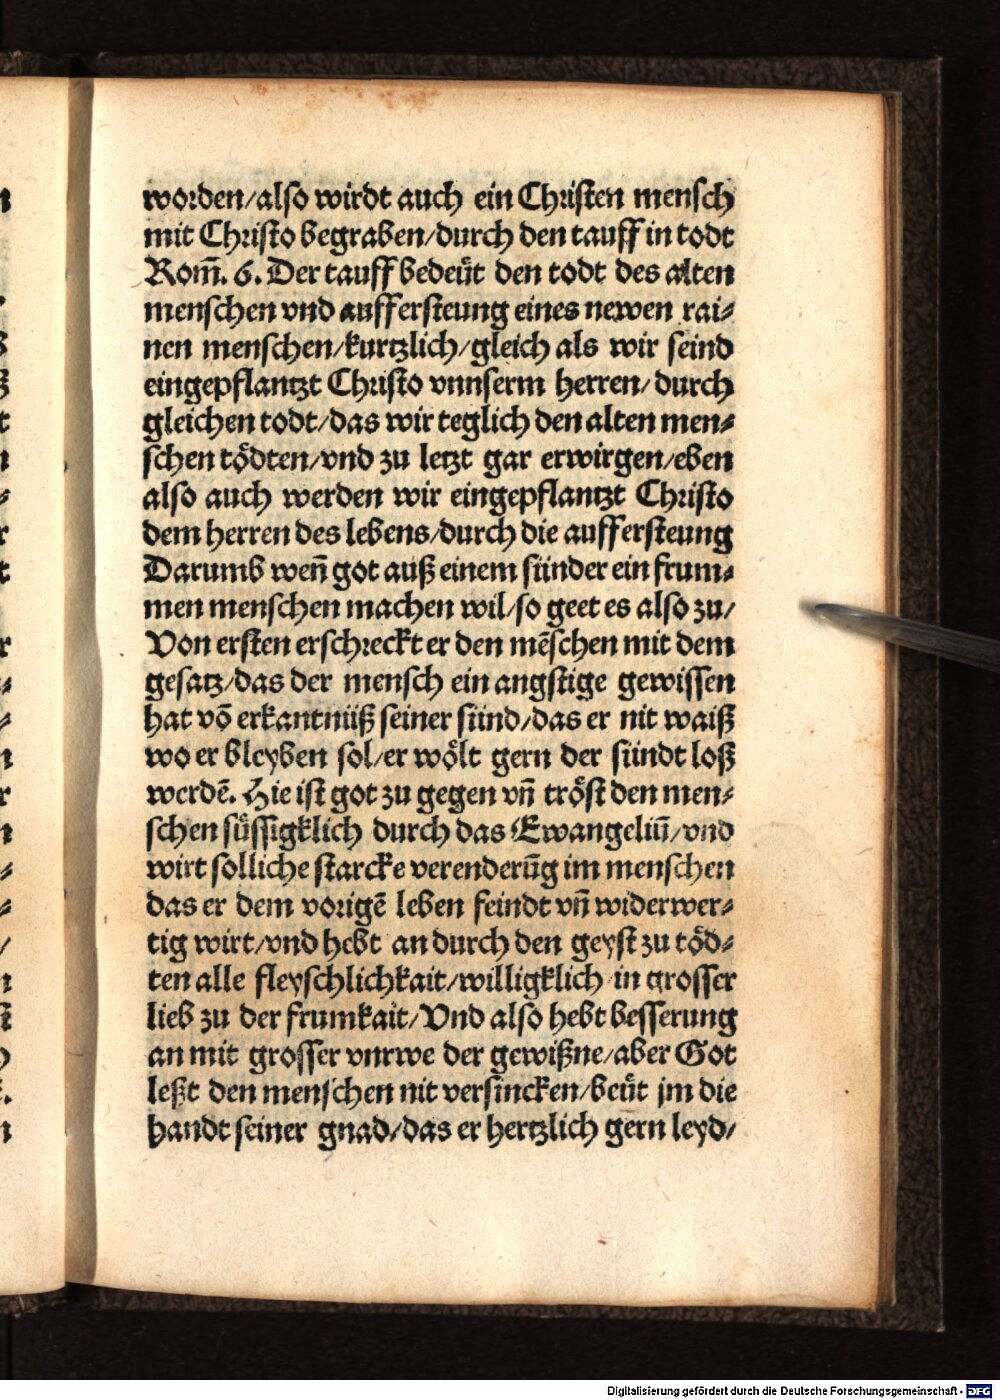 worden/also wirdt auch ein Christen mensch
mit Christo begraben/durch den tauff in todt
Rom̄. 6. Der tauff bedeüt den todt des alten
menschen vnd auffersteung eines newen rai⸗
nen menschen/kurtzlich/gleich als wir seind
eingepflantzt Christo vnnserm herren/durch
gleichen todt/das wir teglich den alten men⸗
schen tödten/vnd zu letzt gar erwirgen/eben
also auch werden wir eingepflantzt Christo
dem herren des lebens/durch die auffersteung
Darumb wen̄ got auß einem sünder ein frum⸗
men menschen machen wil/so geet es also zu/
Von ersten erschreckt er den mēschen mit dem
gesatz/das der mensch ein angstige gewissen
hat vō erkantnüß seiner sünd/das er nit waiß
wo er bleyben sol/er wölt gern der sündt loß
werdē. Hie ist got zu gegen vn̄ tröst den men⸗
schen süssigklich durch das Ewangeliū/vnd
wirt solliche starcke verenderūg im menschen
das er dem vorigē leben feindt vn̄ widerwer⸗
tig wirt/vnd hebt an durch den geyst zu töd⸗
ten alle fleyschlichkait/willigklich in grosser
lieb zu der frumkait/Vnd also hebt besserung
an mit grosser vnrwe der gewißne/aber Got
leßt den menschen nit versincken/beüt jm die
handt seiner gnad/das er hertzlich gern leyd/
Digitalisierung gefördert durch die Deutsche Forschungsgemeinschaft - DFG